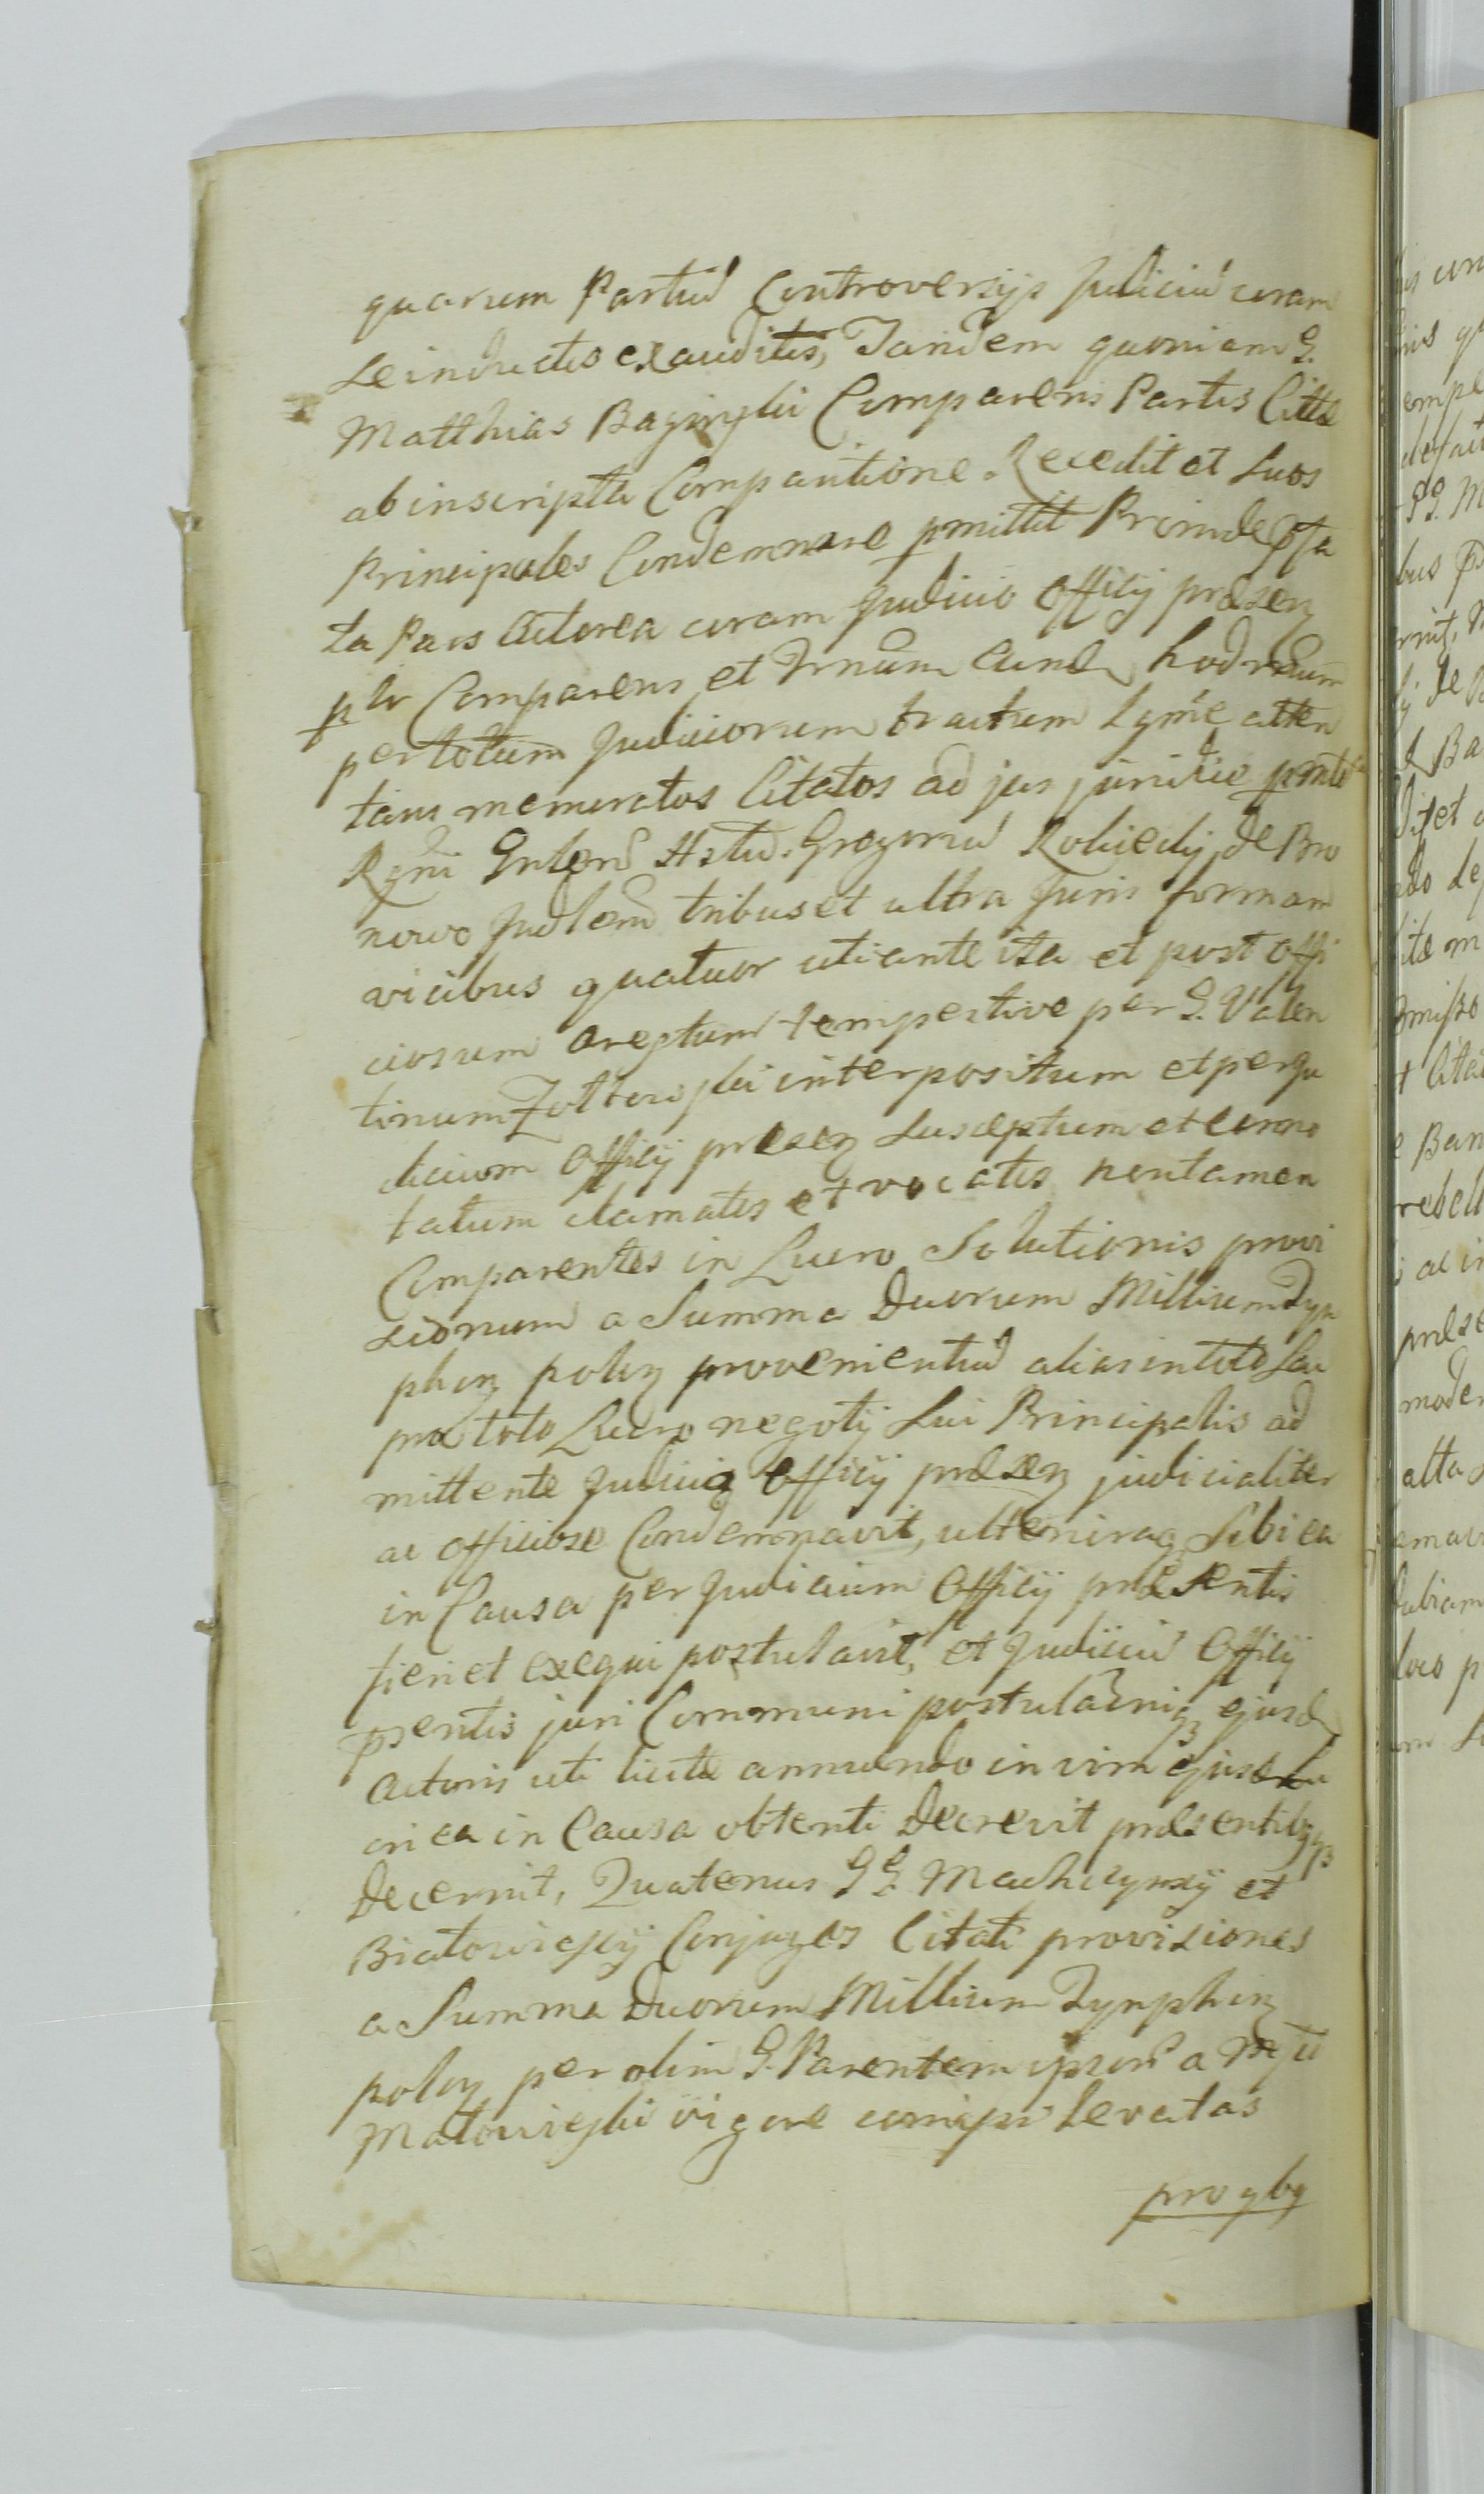 quarum Partiu Controversijs Judiciu coram
se inductis exauditis, Tandem quoniam G.
Matthias Baginski Comparens Partis Cittae
ab inscripta Comparitione Recedit et suos
Principales Condemnare pmittit Proinde
ta Pars Actorea coram Judicio Officij praesen
plr Comparens et Trnum eund hodrnum
per totum Judiciorum tractum Lgme atten
tans memoratos Citatos ad jus juridice
Rgni Gnlem Mstu. Gregoriu de Bro
nowo Judlem tribus et ultra Juris formam
vicibus quatuor uti ante ita et post offi
ciosum areptum tempestive per G. Valen
tinum interpositum et per Ju
dicium Officij praesen susceptum et conno
tatum clamatis et vocatis non tamen
Comparentes in Lucro Solutionis provi
sionum a Summa Duorum Millium Tym
phon polon provenientiu alias in toto seu
pro toto Lucro negotij sui Principalis ad
mittente Judicio Officij praesen judicialiter
ac officiose Condemnavit, ulteriraq sibi ea
in Causa per Judicium Officij praesentis
fieri et exequi postulavit, et Judiciu Officij
psentis juri Communi postulaoniq ejusd
Actoris uti licitae annuendo in vim ejusd lu
cri ea in Causa obtenti Decrevit praesentibq
Decernit, Quatenus GG. Machczynscy et
Białowiejscy Conjuges Citati provisiones
a Summa Duorum Millium Tymphon
polon per olim G. Parentem ipsoru a
Małowieski vigore conscrpi Levatas
pro qbq